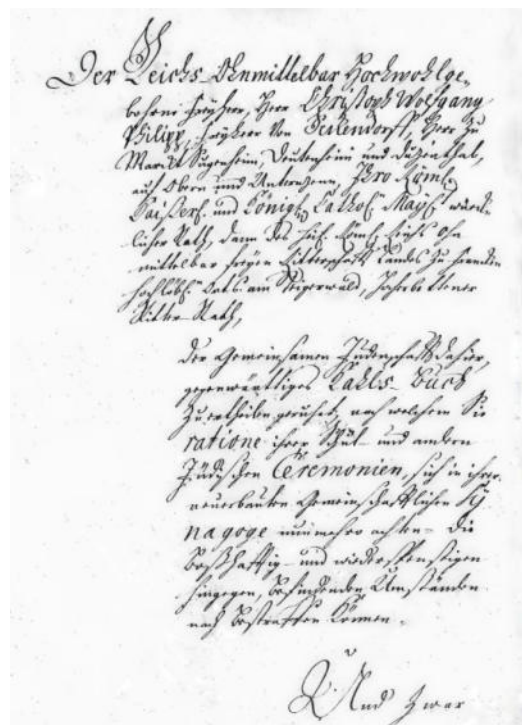 Der Reichs-Ohnmittelbar Hochwohlge-
bohrne Freyherr, Herr Christoph Wolfgang
Philipp, Freyherr Von Seckendorff, Herr zu
Marckt Sugenheim, Deutenheim und Duzenthal,
auf Obern und Unternzenn, Ihro Röml.
Kaißerl. und Königl. Cathol. May. würck-
licher Rath, dann des Heil. Röml. Reichs ohn
mittelbar freyen Ritterschafft Landes zu Francken
hochlöbl. Orts am Steigerwald, Erbettener
Ritter-Rath,
Der Gemeinsamen Judenschafft dahier,
gegenwärttiges Kahls-Buch
zu ertheilen geruhet, nach welchem Sie
ratione ihrer Schul- und andern
Jüdischen Ceremonien, sich in ihrer
neuerbauten Gemeinschafftlichen Sy
nagoge nunmehro achten- die
Boßhafftig- und wiederspenstigen
hingegen, befindenden Umständen
nach bestraffen können.
Und zwar